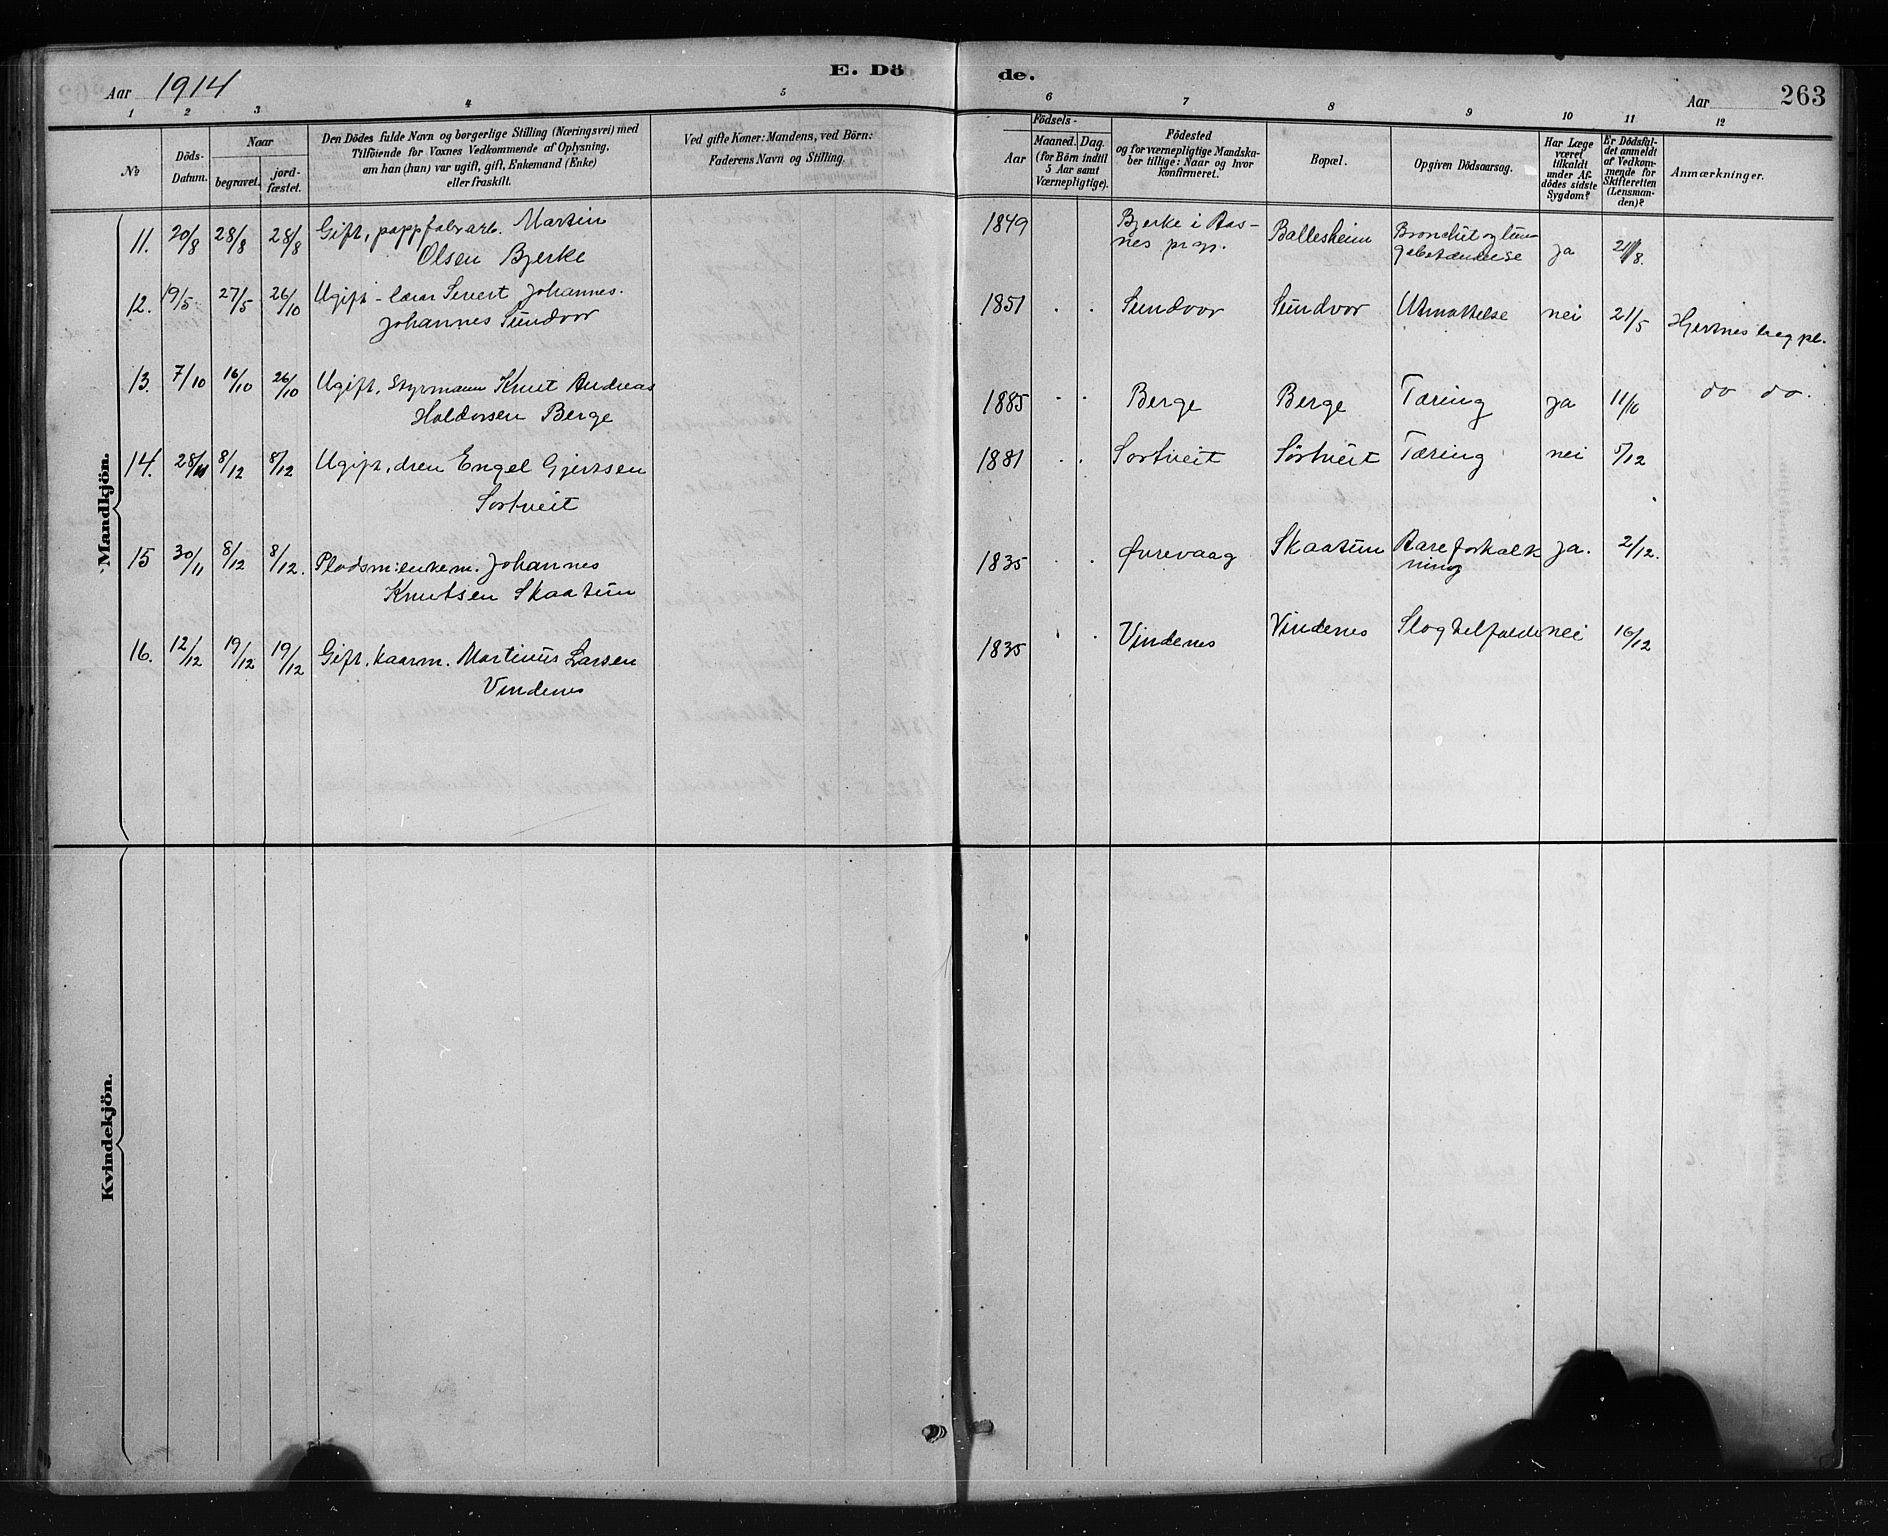 E. Dö de.
Aar 1914
Aar 263
1 2 3 4 5 6 7 8 9 10 11 12
№
Döds-Datum.
Naar
begravet.
jord-fæstet.
Den Dödes fulde Navn og borgerlige Stilling (Næringsvei) med
Tilföiende for Voxnes Vedkommende af Oplysning,
om han (hun) var ugift, gift, Enkemand (Enke)
eller fraskilt.
Ved gifte Koner: Mandens, ved Börn:
Faderens Navn og Stilling.
Födsels-
Aar
Maaned. Dag.
(for Börn indtil
5 Aar samt
Værnepligtige).
Födested
og for værnepligtige Mandska-
ber tillige: Naar og hvor
konfirmeret.
Bopæl.
Opgiven Dödsaarsag.
Har Læge
været
tilkaldt
under Af-
dödes sidste
Sygdom?
Er Dödsfal-
det anmeldt
af Vedkom-
mende for
Skifteretten
(Lensman-
den)?
Anmærkninger.
Mandkjön.
11. 20/8 28/8 28/8 Gift, pappfabr arb. Martin 1849 Bjerke i Aas- Ballesheim Bronchit og lun-
Olsen Bjerke nes pr gj. gebetændelse ja 21/8.
12. 19/5 27/5 26/10 Ugift - lærar Sivert Johannes. 1851 Sundvor Sundvor Utmattelse nei 21/5
Johannes Sundvor Hjertnes
13. 7/10 16/10 26/10 Ugift, styrmann Knut Andreas 1885 Berge Berge Tæring ja 11/10 do do.
Haldorsen Berge
14. 28/11 8/12 8/12 Ugift, dren Engel Gjertsen 1881 Sortveit Sørtveit Tæring nei 5/12
Sortveit
15 30/11 8/12 8/12. Pladsm: enkem. Johannes 1835 Øvrevaag Skaatun Aareforkalk ja. 2/12.
Knutsen Skaatun ning
16. 12/12 19/12 19/12 Gift, kaarm. Martinus Larsen 1835 Vindenes Vindenes Slagtilfælde nei 16/12
Vindenes
Kvindekjön.